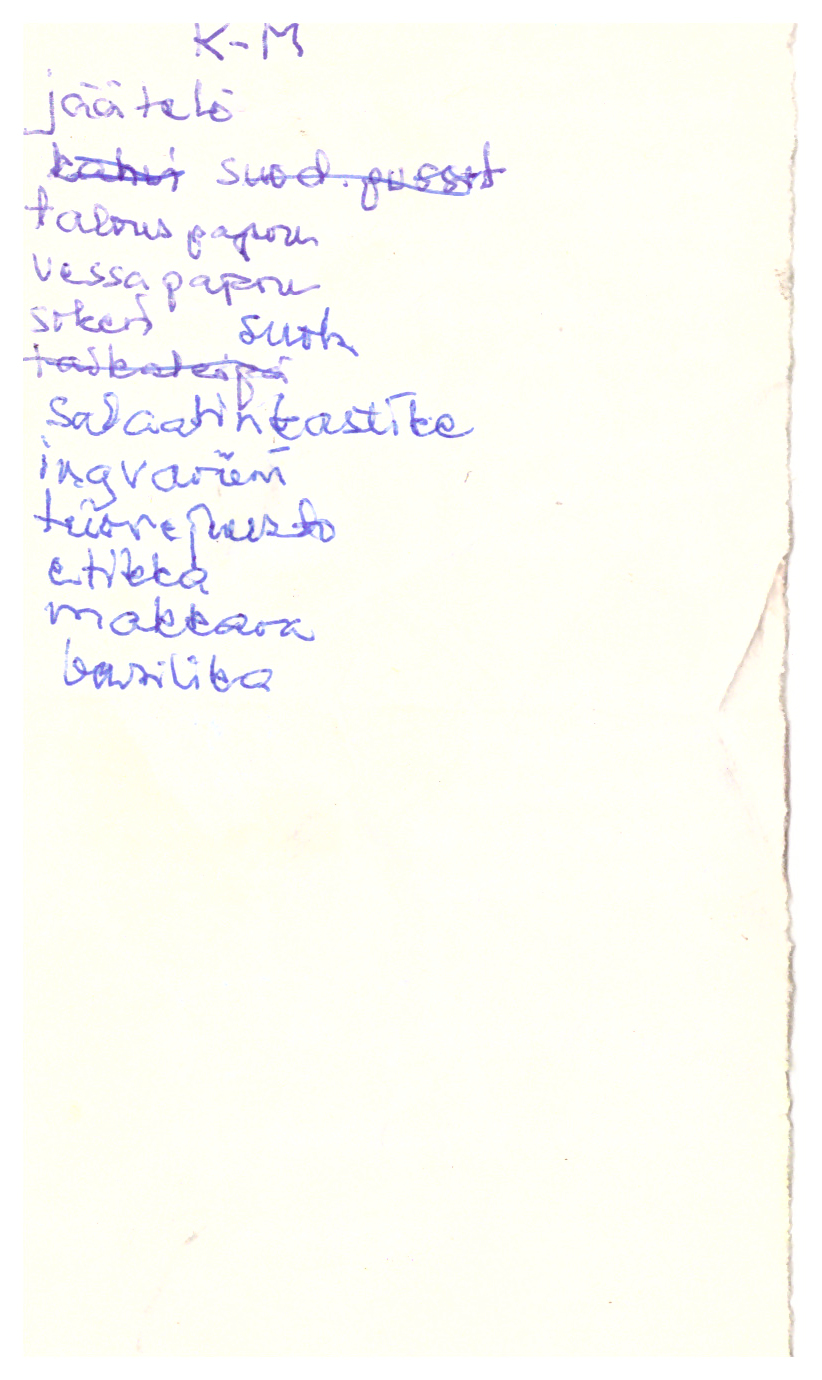 K-M
jäätelö
kahvi suod.pussit
talouspaperi
vessapaperi
sokeri suola
taikateippi
salaatinkastike
ingvarieni
tuorejuusto
etikka
makkara
basilika